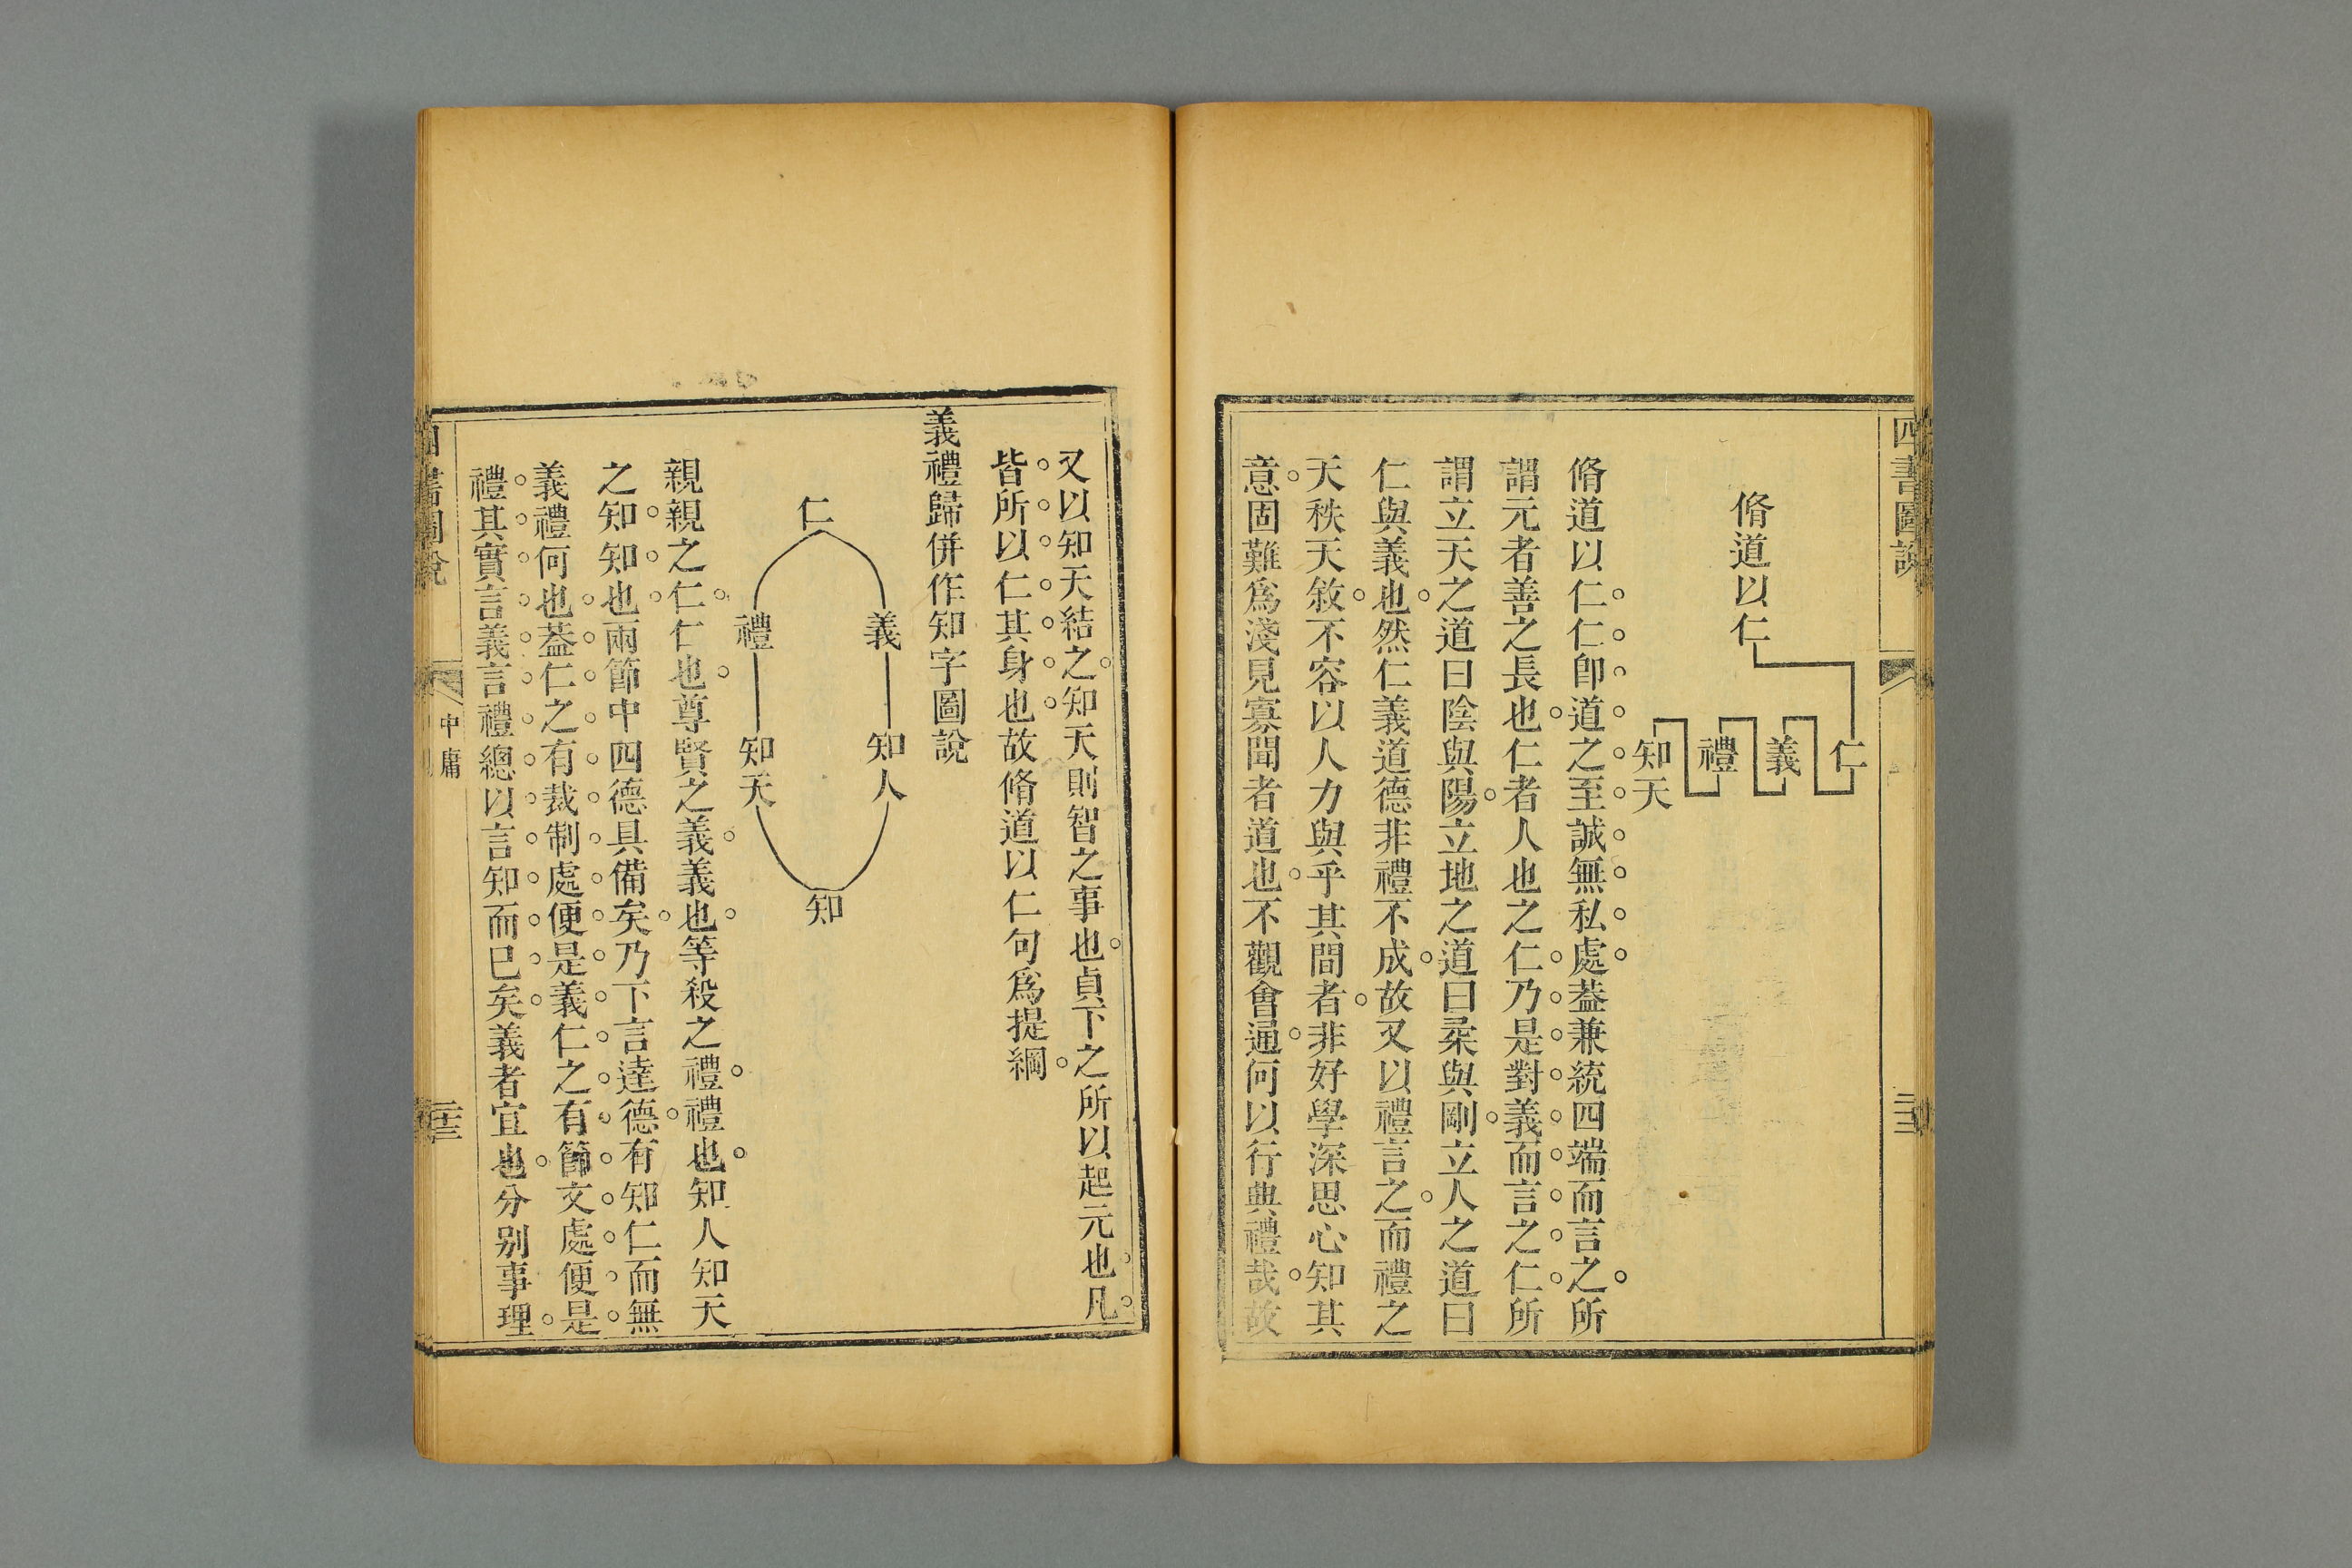 四書圖說
二十三
脩道以仁
仁
義
禮
知天
脩道以仁仁卽道之至誠無私處葢兼統四端而言之所
謂元者善之長也仁者人也之仁乃是對義而言之仁所
謂立天之道曰陰與陽立地之道曰柔與剛立人之道曰
仁與義也然仁義道德非禮不成故又以禮言之而禮之
天秩天敘不容以人力與乎其間者非好學深思心知其
意固難爲淺見寡聞者道也不觀會通何以行典禮哉故
又以知天結之知天則智之事也貞下之所以起元也凡
皆所以仁其身也故脩道以仁句爲提綱
義禮歸併作知字圖說
仁
義 知人
禮 知天
知
親親之仁仁也尊賢之義義也等殺之禮禮也知人知天
之知知也兩節中四德具備矣乃下言達德有知仁而無
義禮何也葢仁之有裁制處便是義仁之有節文處便是
禮其實言義言禮總以言知而已矣義者宜也分别事理
四書圖說
中庸
二十三